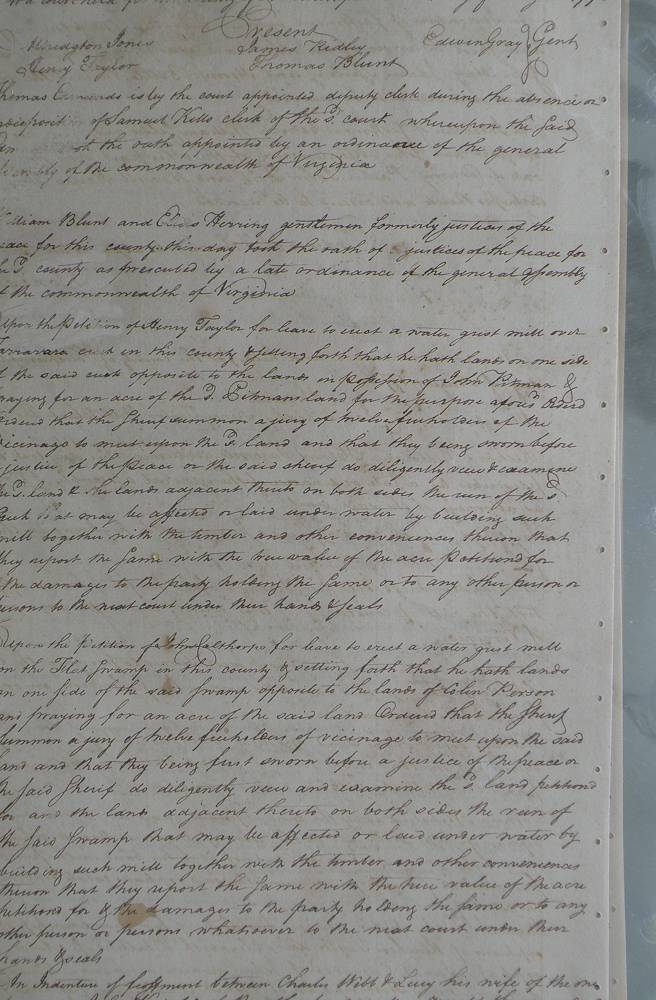 Present
James Ridley Edwin Gray Gent
Henry Taylor Thomas Blunt
Thomas Edmunds is by the court appointed deputy clerk during the absence or
of Samuel Kello clerk of the sd. court whereupon the said
the oath appointed by an ordinance of the general
of the commonwealth of Virginia
William Blunt and Herring gentlemen formerly justices of the
peace for this county this day took the oath of justices of the peace for
the sd. county as prescribed by a late ordinance of the general Assembly
of the commonwealth of Virginia
Upon the Petition of Henry Taylor for leave to erect a water grist mill over
in this county & setting forth that he hath lands on one side
of the said creek opposite to the lands in Possession of John Pitman &
praying for an acre of the sd. Pitmans land for the purpose aforesd.
ordered that the Sherif summon a jury of twelve freeholders of the
vicinage to meet upon the sd. land and that they being sworn before
a justice of the Peace or the said sherif do diligently view & examine
the sd. land & the lands adjacent thereto on both sides the run of the sd.
Creek that may be affected or laid under water by building such
mill together with the timber and other conveniences thereon that
they report the same with the true value of the acre Petitiond for
& the damages to the party holding the same or to any other person or
persons to the next court under their hands & seals
Upon the Petition of John Calthorpe for leave to erect a water grist mill
on the Flat Swamp in this county & setting forth that he hath lands
on one side of the said swamp opposite to the lands of Colin Person
and praying for an acre of the said land Ordered that the Sherif
summon a jury of twelve freeholders of vicinage to meet upon the said
land and that they being first sworn before a justice of the peace or
the said Sherif do diligently view and examine the sd. land petitiond
for and the lands adjacent thereto on both sides the run of
the said Swamp that may be affected or laid under water by
building such mill together with the timber and other conveniences
thereon that they report the same with the true value of the acre
petitiond for & the damages to the party holding the same or to any
other person or persons whatsoever to the next court under their
hands & seals
An Indenture of feoffment between Charles Webb & Lucy his wife of the one